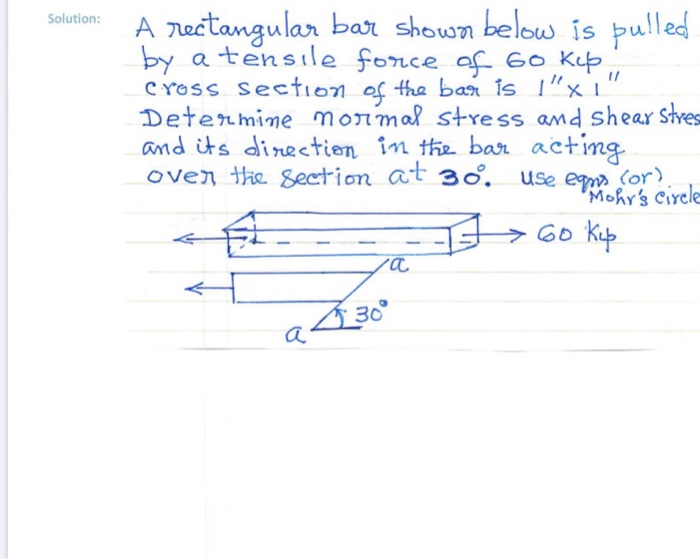 Solution:
A rectangular bar shown below is pulled
by a tensile force of 60 Kip
cross section of the bar is 1"x1"
Determine normal stress and shear stres
and its direction in the bar acting
over the section at 30°. use eqns (or)
Mohr's circle
60 Kip
a
30°
a